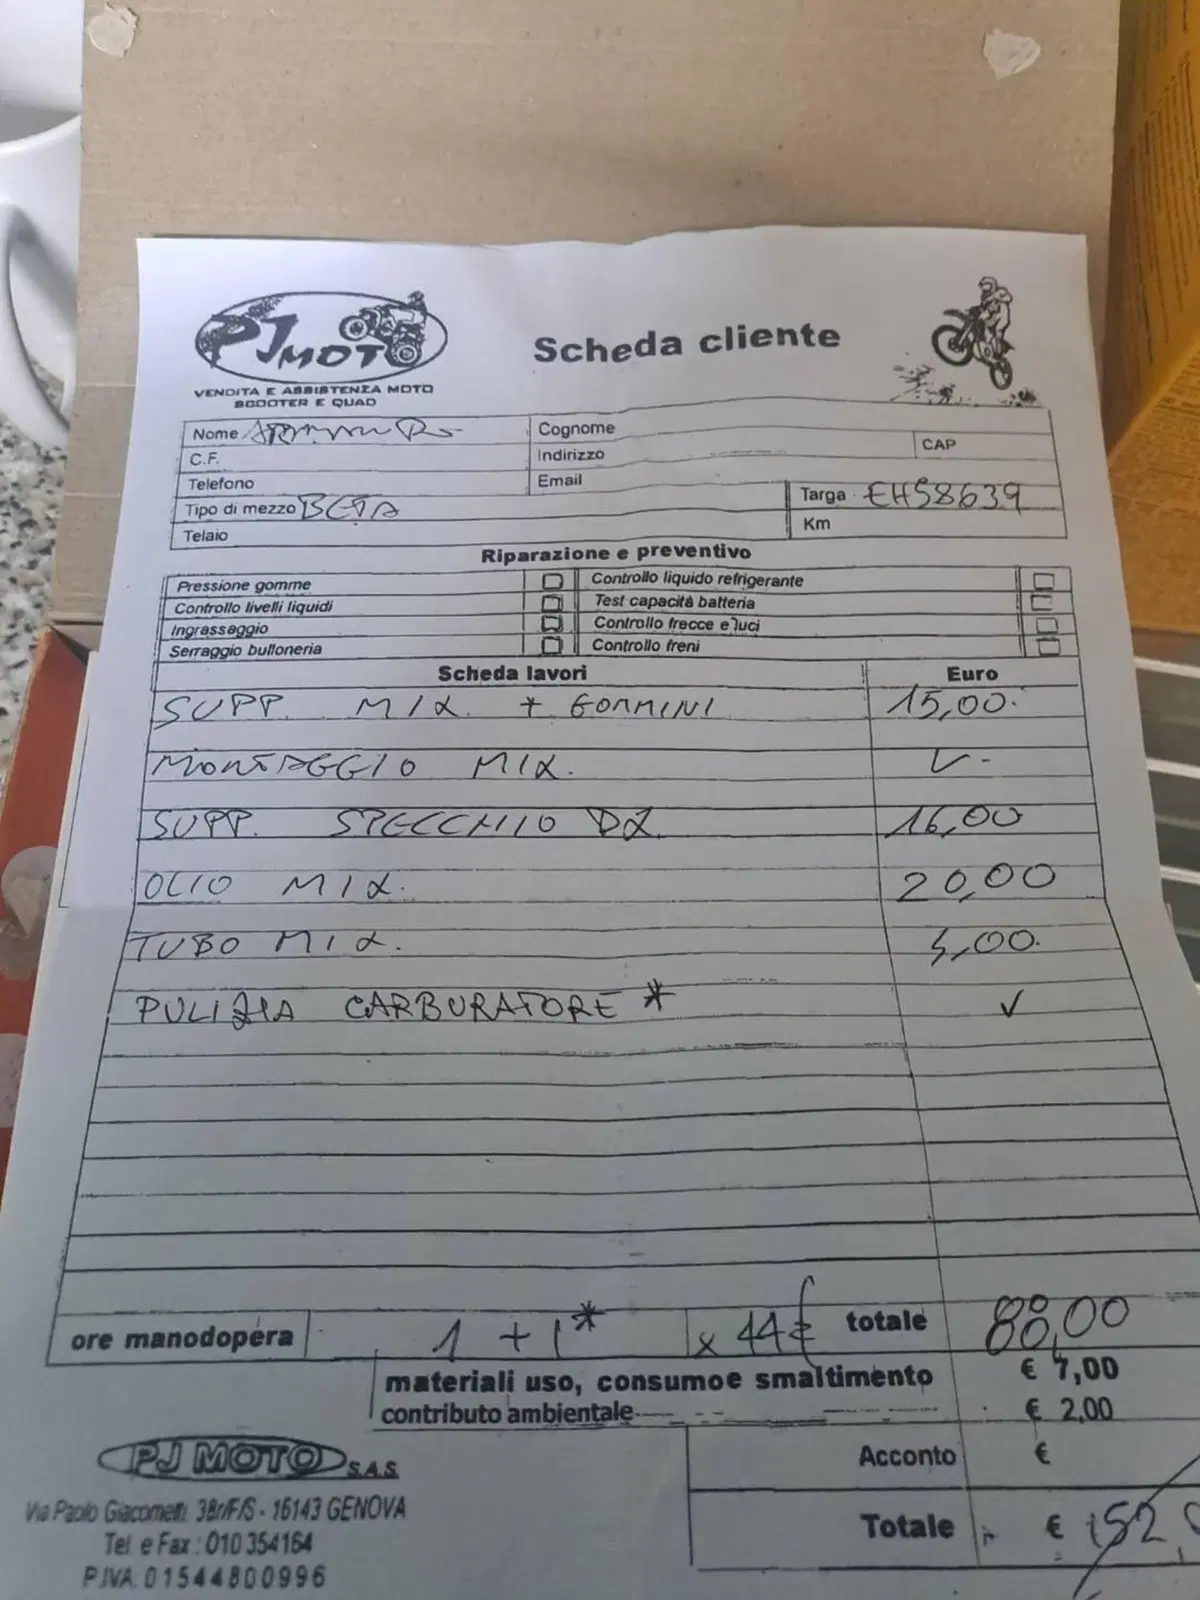 PJ MOTO
VENDITA E ASSISTENZA MOTO
SCOOTER E QUAD
Scheda cliente
Nome
Cognome
C.F.
Indirizzo
CAP
Telefono
Email
Tipo di mezzo BETA
Targa EH58639
Telaio
Km
Riparazione e preventivo
Pressione gomme
Controllo liquido refrigerante
Controllo livelli liquidi
Test capacità batteria
Ingrassaggio
Controllo frecce e luci
Serraggio bulloneria
Controllo freni
Scheda lavori Euro
SUPP. MIX. + GOMMINI 15,00
MONTAGGIO MIX. ✓
SUPP. SPECCHIO DX. 16,00
OLIO MIX. 20,00
TUBO MIX. 4,00
PULIZIA CARBURATORE * ✓
ore manodopera 1 + 1* x 44€ totale 88,00
materiali uso, consumo e smaltimento € 7,00
contributo ambientale € 2,00
Acconto €
Totale € 152,
PJ MOTO S.A.S.
Via Paolo Giacometti 38r/F/S - 16143 GENOVA
Tel. e Fax : 010 354164
P.IVA 01544800996